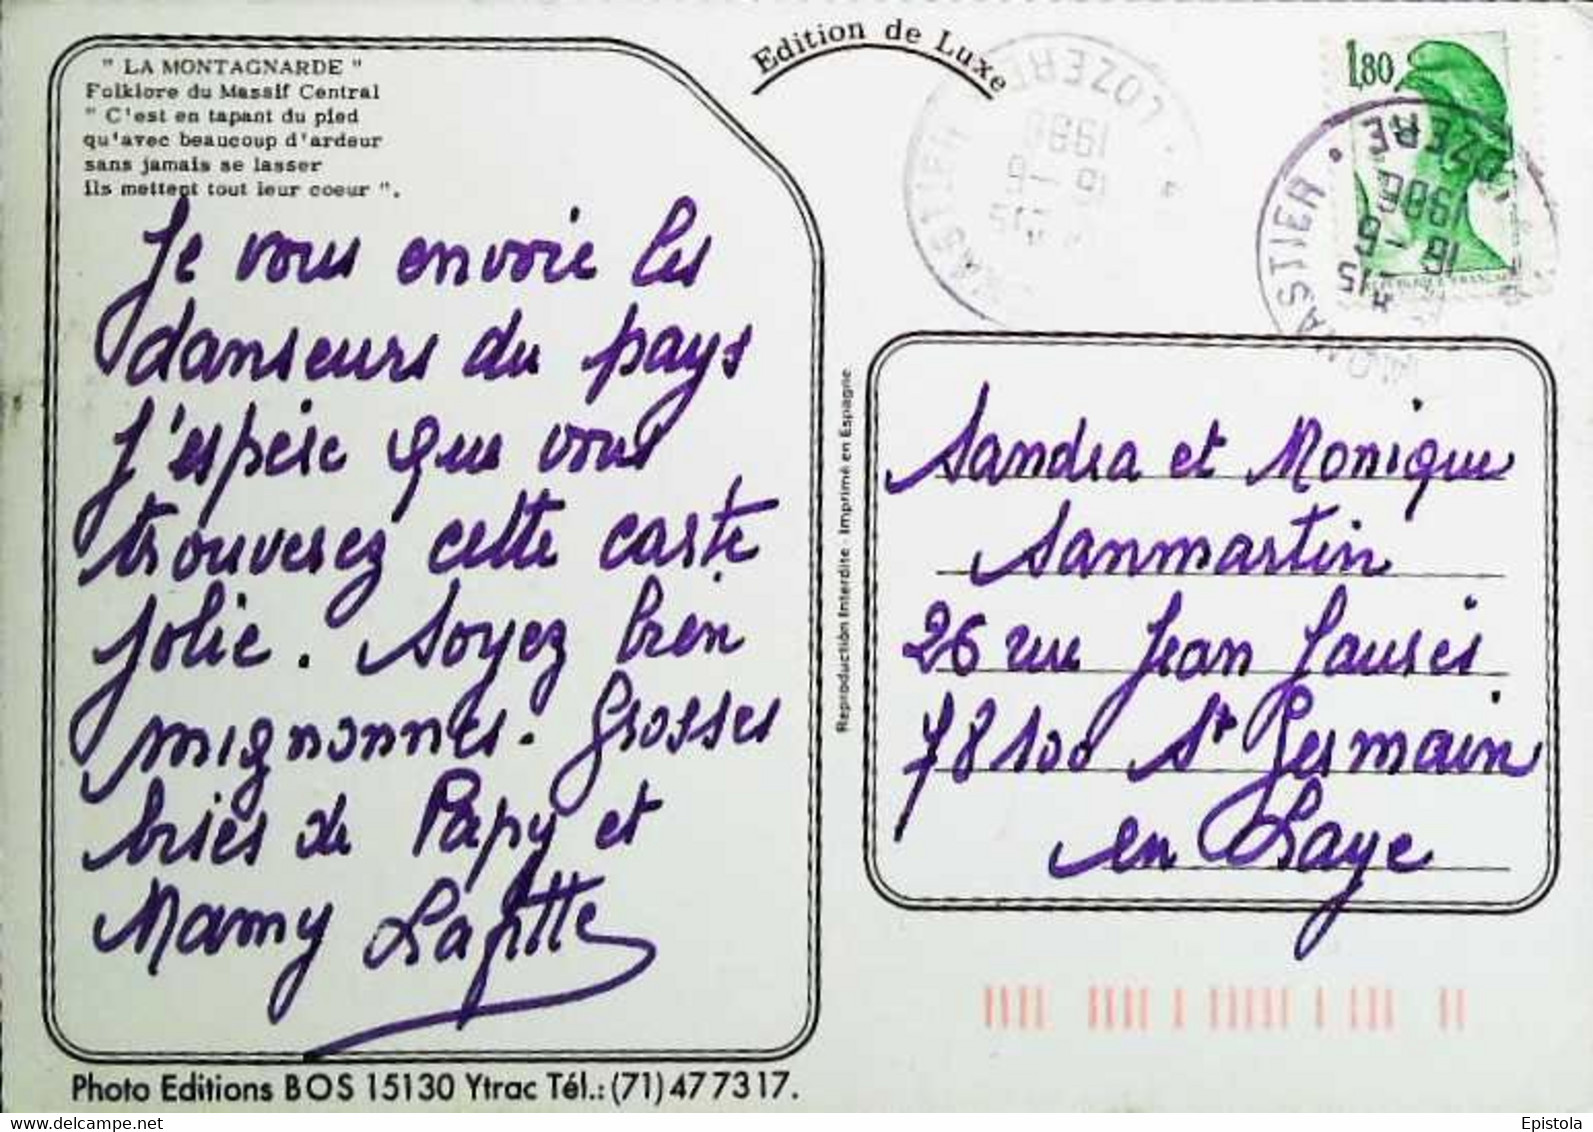 " LA MONTAGNARDE "
Folklore du Massif Central
" C'est en tapant du pied
qu'avec beaucoup d'ardeur
sans jamais se lasser
ils mettent tout leur coeur ".
Je vous envoie les
danseurs du pays
J'espère que vous
trouverez cette carte
jolie. Soyez bien
mignonnes. Grosses
bises de Papy et
Mamy Lafitte
Photo Editions BOS 15130 Ytrac Tél.: (71) 47 73 17.
Edition de Luxe
Reproduction Interdite - Imprimé en Espagne
LOZERE
1988
1,80
LOZERE
1988
Sandra et Monique
Sanmartin
26 rue Jean Jaurès
78100 St Germain
en Laye
delcampe.net
Epistola